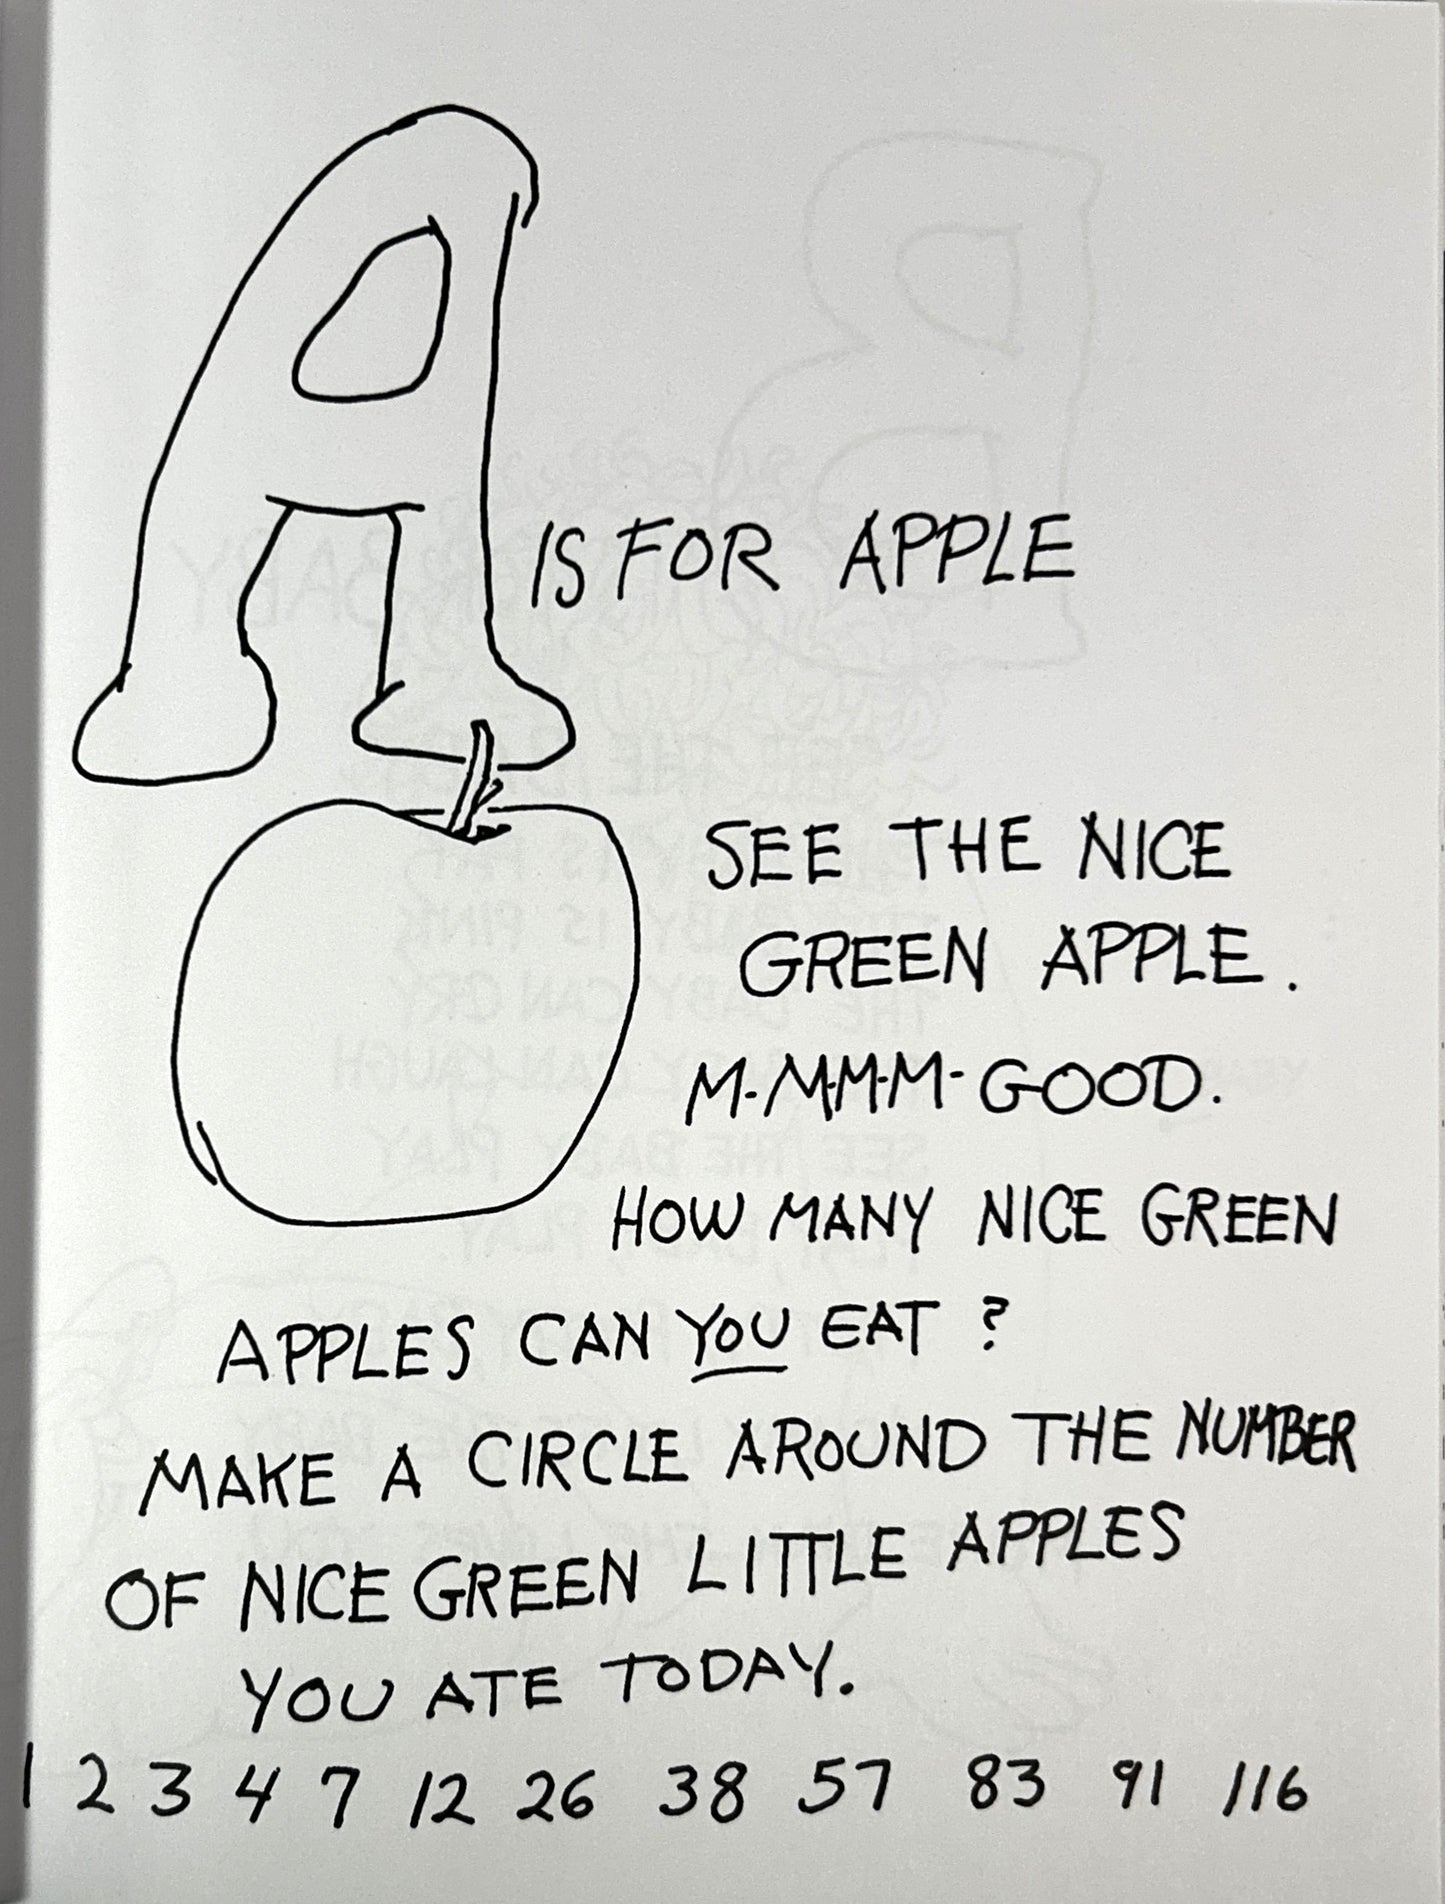 A IS FOR APPLE
SEE THE NICE
GREEN APPLE.
M-M-M-M-GOOD.
HOW MANY NICE GREEN
APPLES CAN YOU EAT?
MAKE A CIRCLE AROUND THE NUMBER
OF NICE GREEN LITTLE APPLES
YOU ATE TODAY.
1 2 3 4 7 12 26 38 57 83 91 116